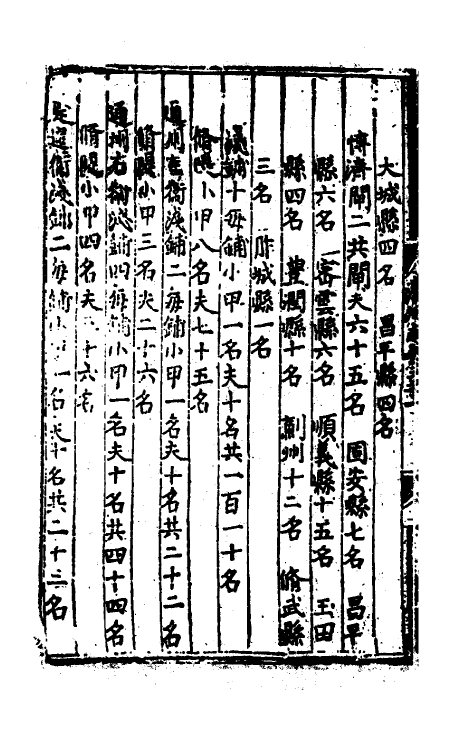 大城縣四名 昌平縣四名
博濟閘二共閘夫六十五名 固安縣七名 昌平
縣六名 密雲縣六名 順義縣十五名 玉田
縣四名 豐潤縣十名 薊州十二名 脩武縣
三名 胙城縣一名
淺鋪十每鋪小甲一名夫十名共一百一十名
脩堤小甲八名夫七十五名
通州左衛淺鋪二每鋪小甲一名夫十名共二十二名
脩堤小甲三名夫二十六名
通州右衛淺鋪四每鋪小甲一名夫十名共四十四名
脩堤小甲四名夫三十六名
定邊衛淺鋪二每鋪小甲一名夫十名共二十二名